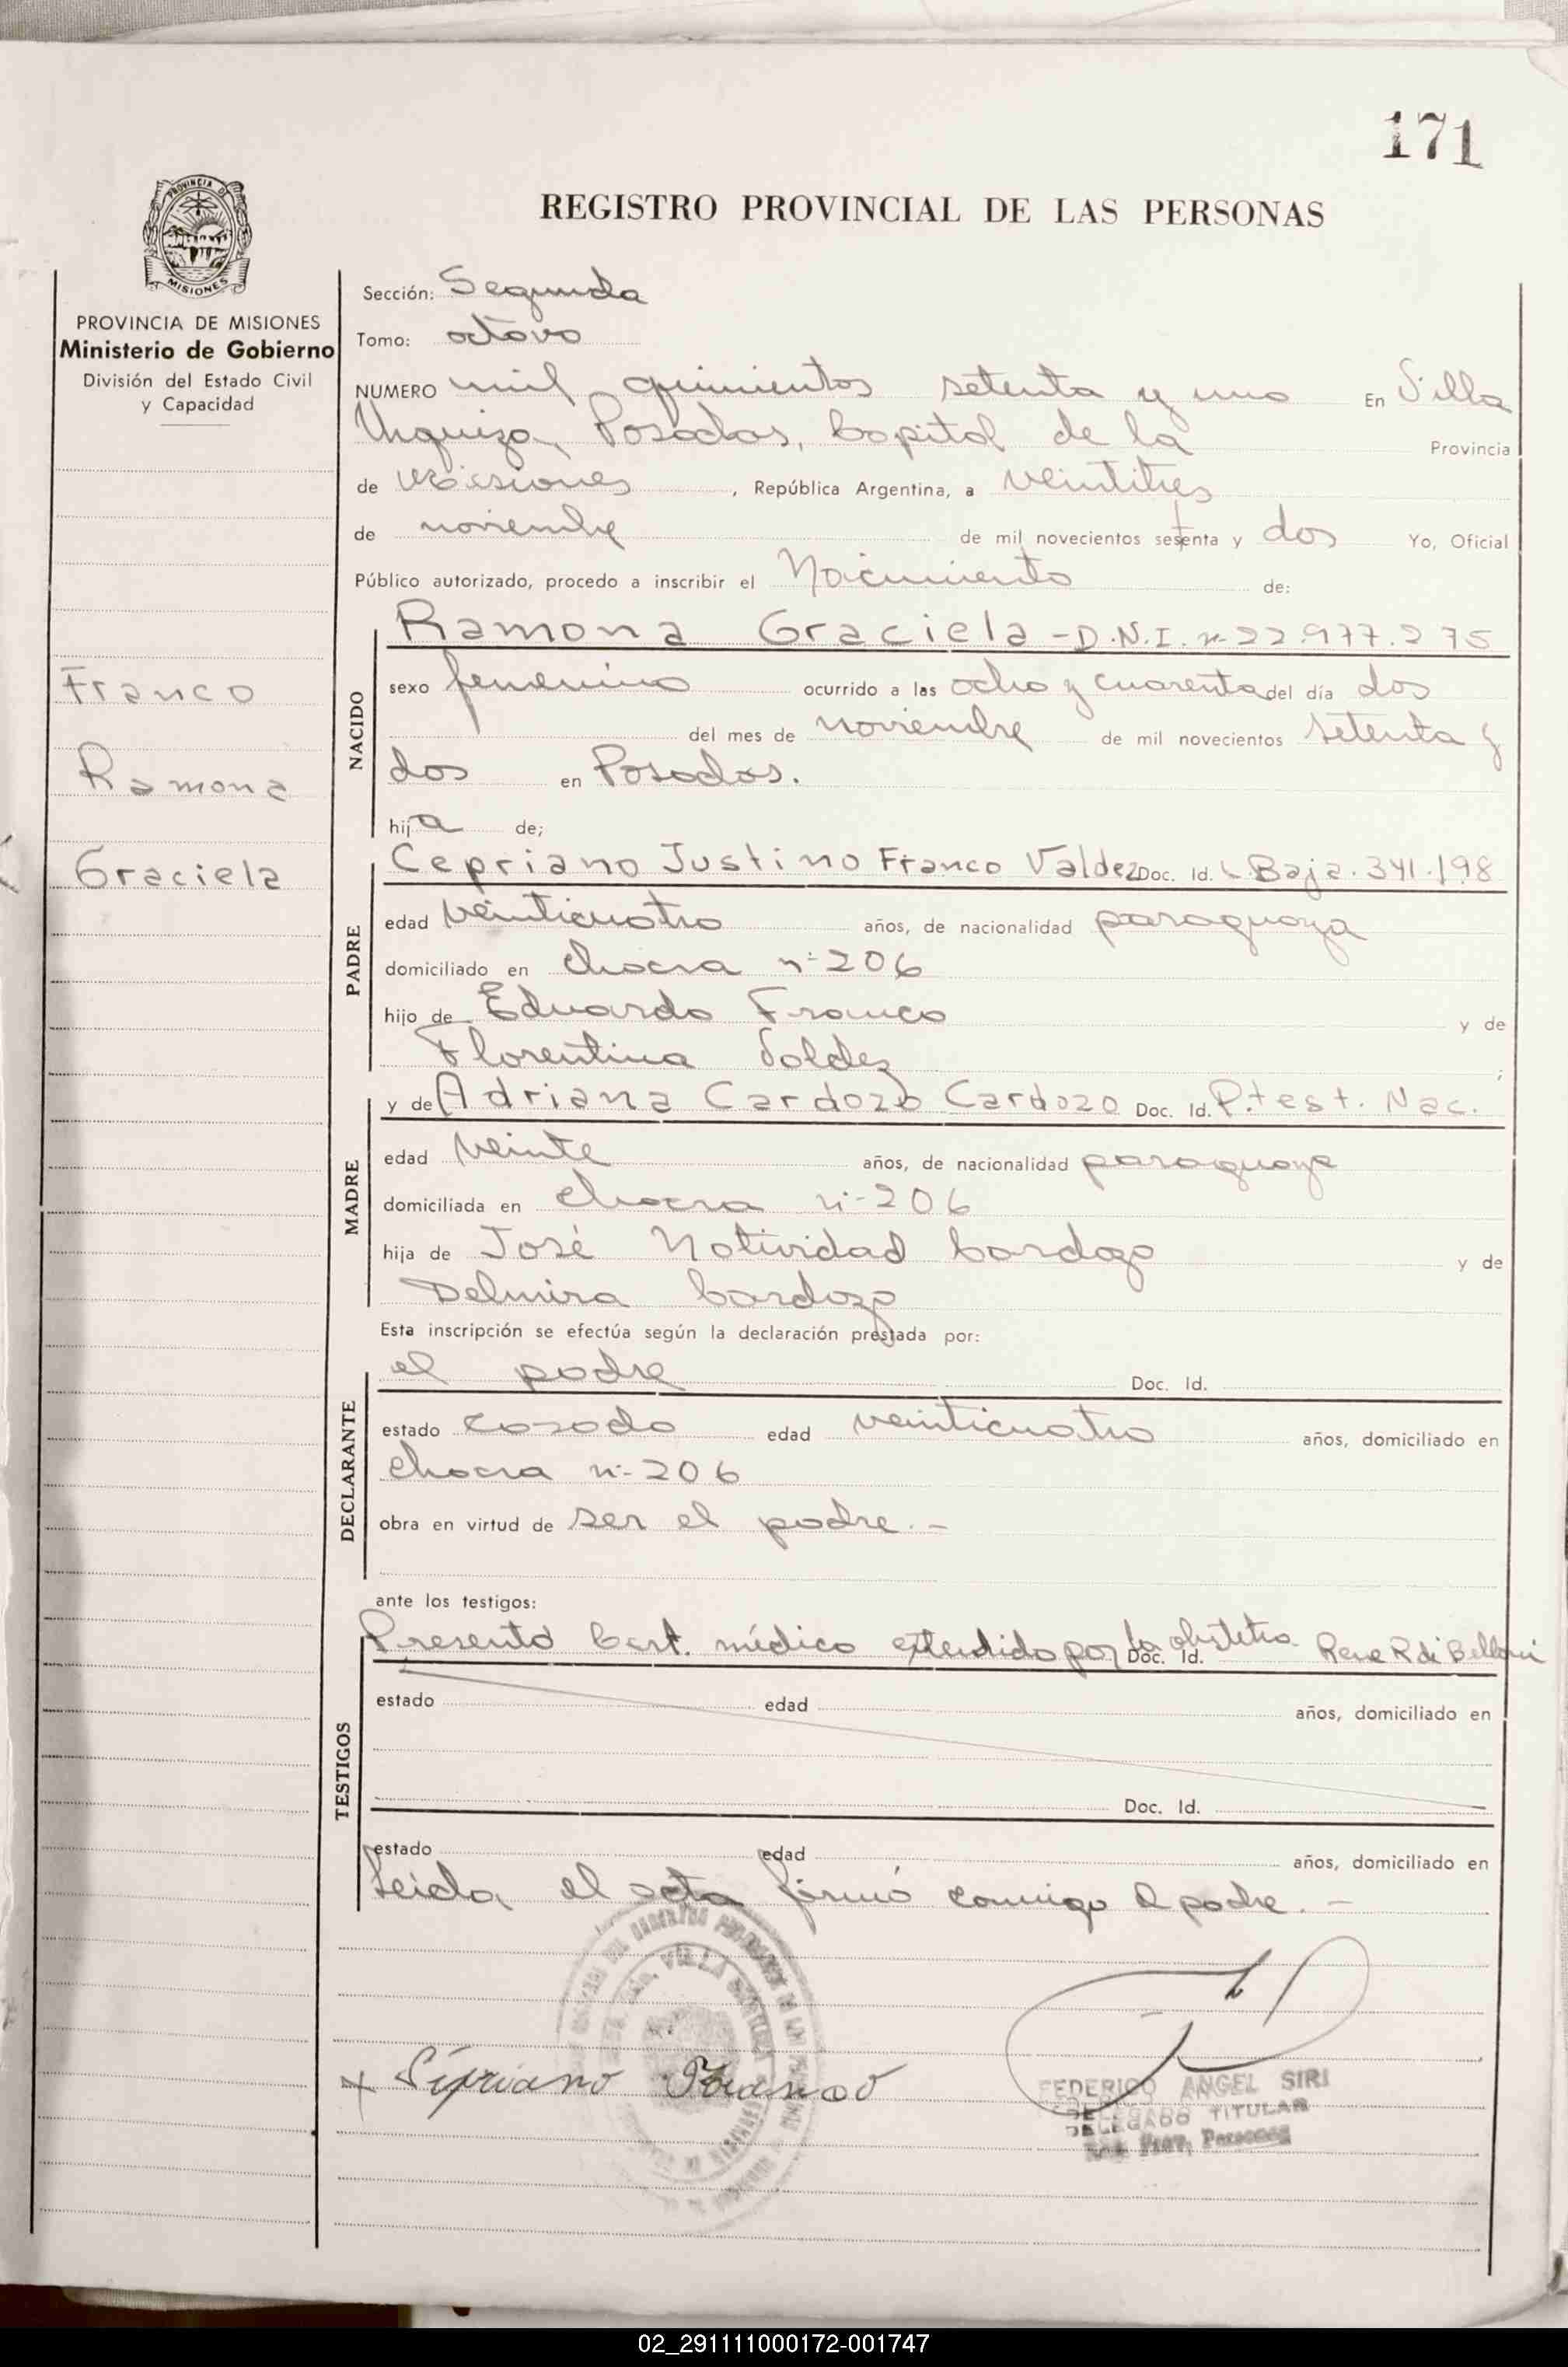 171
REGISTRO PROVINCIAL DE LAS PERSONAS
PROVINCIA DE MISIONES
Ministerio de Gobierno
División del Estado Civil
y Capacidad
Franco
Ramona
Graciela
Sección: Segunda
Tomo: octavo
NUMERO mil quinientos setenta y uno En Villa
Urquiza, Posadas, Capital de la Provincia
de Misiones, República Argentina, a veintitres
de noviembre de mil novecientos setenta y dos Yo, Oficial
Público autorizado, procedo a inscribir el Nacimiento de:
NACIDO
Ramona Graciela - D.N.I. nº 22.977.275
sexo femenino ocurrido a las ocho y cuarenta del día dos
del mes de noviembre de mil novecientos setenta y
dos en Posadas.
hija de;
PADRE
Cepriano Justino Franco Valdez Doc. Id. C. Baja. 341.198
edad veinticuatro años, de nacionalidad paraguaya
domiciliado en chacra nº 206
hijo de Eduardo Franco y de
Florentina Valdez ;
MADRE
y de Adriana Cardozo Cardozo Doc. Id. P. test. Nac.
edad veinte años, de nacionalidad paraguaya
domiciliada en chacra nº 206
hija de José Natividad Cardozo y de
Delmira Cardozo
Esta inscripción se efectúa según la declaración prestada por:
DECLARANTE
el padre Doc. Id.
estado casado edad veinticuatro años, domiciliado en
chacra nº 206
obra en virtud de ser el padre. -
ante los testigos:
TESTIGOS
Presentó Cert. médico extendido por la obstetra Rene R di Belloni Doc. Id.
estado edad años, domiciliado en
Doc. Id.
estado edad años, domiciliado en
Leida el acta firmó conmigo el padre. -
x Sipriano Franco
FEDERICO ANGEL SIRI
DELEGADO TITULAR
Prov. Personas
02_291111000172-001747